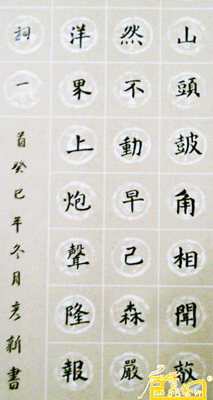 山頭皷角相聞敌
然不動早已森嚴
洋界上炮聲隆報
詞一首癸巳年冬月彦新書